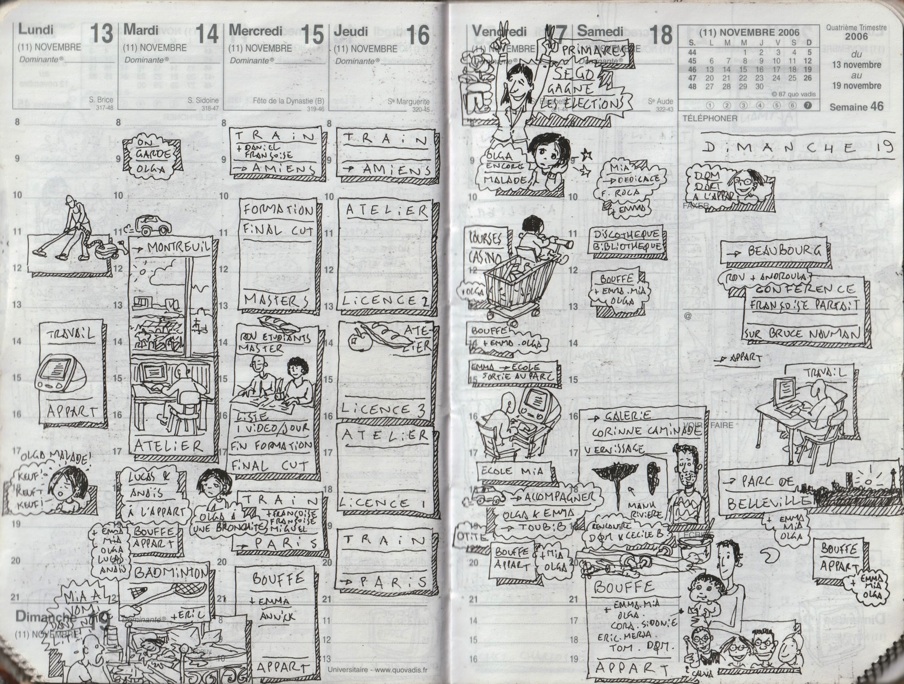 Lundi 13
(11) NOVEMBRE
Dominante
S. Brice
317-48
8
9
10
11
12
13
14
15
16
17
18
19
20
21
TRAVAIL
APPART
OLGA MALADE!
KEUF!
KEUFT
KEUF!
MIA A
VOMI
Dimanche 19
(11) NOVEMBRE
Mardi 14
(11) NOVEMBRE
Dominante
S. Sidoine
318-47
8
9
ON
GARDE
OLGA
10
11
→ MONTREUIL
12
13
14
15
16
ATELIER
17
LUCAS &
ANAÏS
À L'APPART
BOUFFE
APPART
+ EMMA
MIA
OLGA
LUCAS
ANAÏS
BADMINTON
+ ERIC
Dominante
Mercredi 15
(11) NOVEMBRE
Dominante
Fête de la Dynastie (B)
319-46
8
TRAIN
+ DANIEL
FRANÇOISE
→ AMIENS
10
FORMATION
FINAL CUT
11
12
13
MASTERS
14
RDV ETUDIANTS
MASTER
15
16
LISTE
1 VIDEO/JOUR
FIN FORMATION
FINAL CUT
17
OLGA A
UNE BRONCHITE
TRAIN
+ FRANÇOISE
FRANÇOISE
MIGUEL
→ PARIS
20
BOUFFE
21
+ EMMA
ANNICK
APPART
Jeudi 16
(11) NOVEMBRE
Dominante
Ste Marguerite
320-45
8
TRAIN
9
→ AMIENS
10
ATELIER
11
12
13
LICENCE 2
14
ATE-
LIER
15
16
LICENCE 3
ATELIER
17
18
LICENCE 1
19
TRAIN
20
→ PARIS
21
Universitaire - www.quovadis.fr
Vendredi 17
NOVEMBRE
PRIMAIRES
SEGO
GAGNE
LES ELECTIONS
OLGA
ENCORE
MALADE
COURSES
CASINO
+ OLGA
BOUFFE
+ EMMA . OLGA
EMMA → ECOLE
SORTIE AU PARC
ECOLE MIA
→ ACCOMPAGNER
OLGA & EMMA
→ TOUBIB
OTITE
BOUFFE
APPART
+ MIA
OLGA
Samedi 18
Ste Aude
322-43
MIA
→ DEDICACE
F. ROCA
+ EMMA
DISCOTHEQUE
BIBLIOTHEQUE
BOUFFE
+ EMMA . MIA
OLGA
→ GALERIE
CORINNE CAMINADE
VERNISSAGE
MANU
RIVIÈRE
RENCONTRE
DOM & CECILE B
BOUFFE
+ EMMA . MIA
OLGA
CORA . SIDONIE
ERIC . MERIA
TOM . DOM.
APPART
CALVA
(11) NOVEMBRE 2006
S. L M M J V S D
44 1 2 3 4 5
45 6 7 8 9 10 11 12
46 13 14 15 16 17 18 19
47 20 21 22 23 24 25 26
48 27 28 29 30
© 67 quo vadis
1 2 3 4 5 6 7
Quatrième Trimestre
2006
du
13 novembre
au
19 novembre
Semaine 46
TÉLÉPHONER
DIMANCHE 19
DOM
DORT
A L'APPART
→ BEAUBOURG
RDV + ANDROULA
CONFÉRENCE
FRANÇOISE PARFAIT
SUR BRUCE NAUMAN
@
→ APPART
TRAVAIL
FAIRE
→ PARC DE
BELLEVILLE
+ EMMA
MIA
OLGA
BOUFFE
APPART
+ EMMA
MIA
OLGA